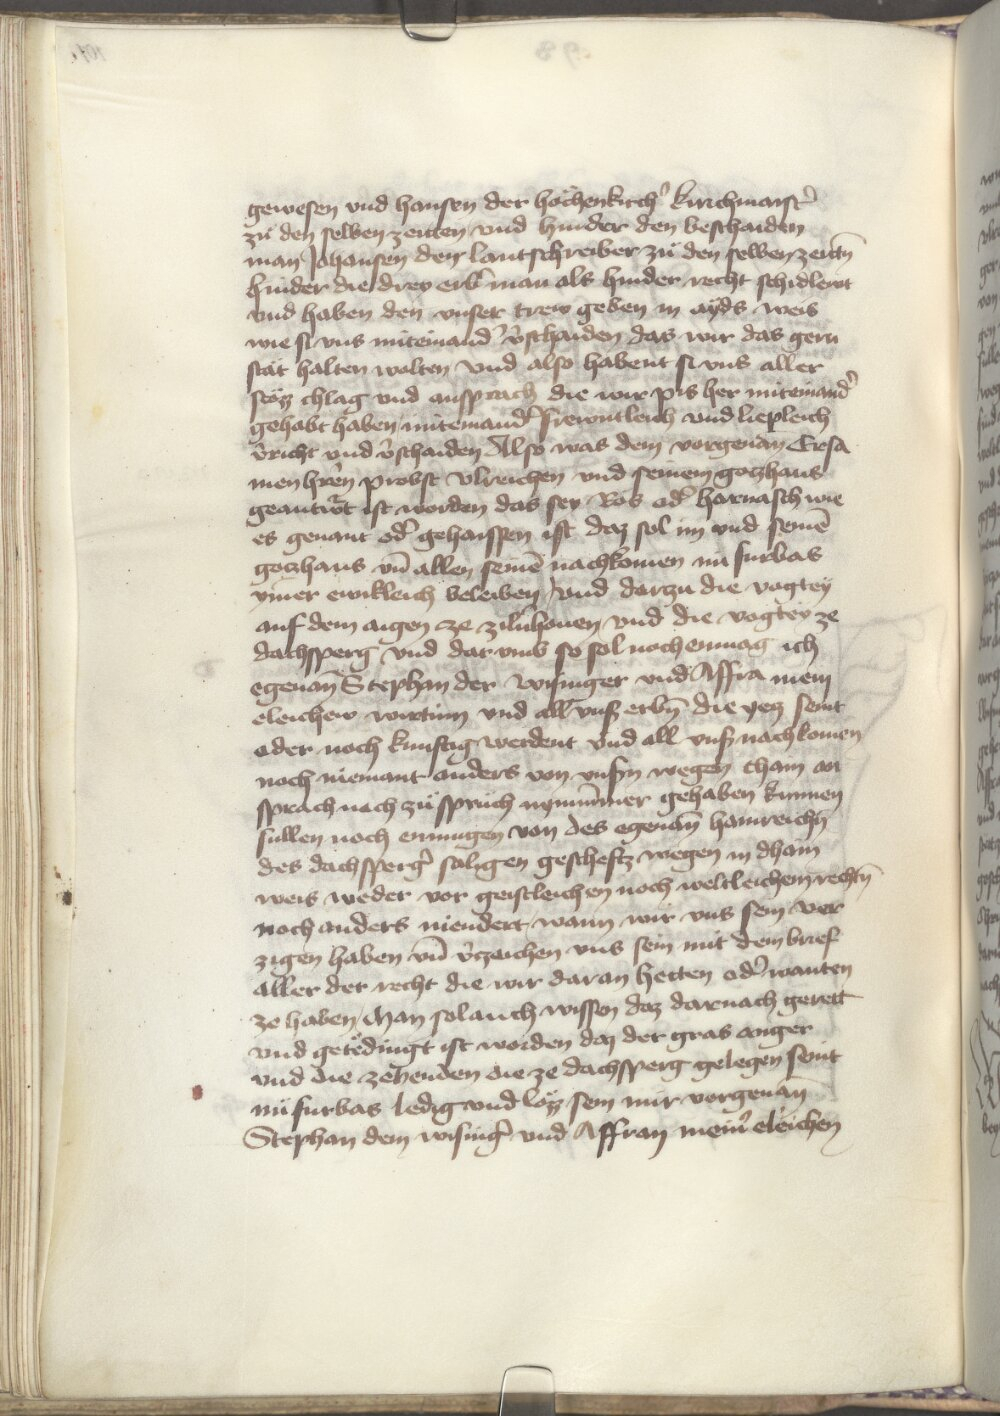 gewesen vnd hansen der höchenkirch̾ kirchmaist̾
zů den selben zeitten vnd hinder den beschaiden
man Johansen den lantschreiber zů den selben zeitn̄
hinder die drey erb̾ man als hinder recht schidlewt
vnd haben den vnser trew geben in ayds weis
wie si vns miteinand̾ v̾schaiden daz wir das gern
stät halten wolten vnd also habent si vns aller
stözz chlag vnd ansprach die wir pis her miteinand̾
gehabt haben miteinand̾ frewntleich vnd liepleich
v̾richt vnd v̾schaiden Also was dem vorgenan̄ Ersa
men hr̄en probst vlreichen vnd seinem gotzhaus
geantwͬt ist worden das sey Ros od̾ harnasch wie
es genant od̾ gehaissen ist daz sol im vnd seinē
gotzhaus vn̄ allen seinē nachkomen nu furbas
ymer ewikleich beleiben / vnd darzu die vogtey
auf dem aigen ze zilnhouen vnd die vogtey ze
dachsperg vnd dar vmb so sol noch enmag ich
egenan̄ Stephan der wisinger vnd Affra mein
eleichew wirtinn vnd all vnß erbn̄ die yetz seint
oder noch kunftig werdent vnd all vnß nachkomen
noch niemant anders von vnßn wegen chain an
sprach nach zůspruch nymm̄mer gehaben kunnen
sullen noch enmugen von des egenan̄ hainreichn̄
des dachsperg̾ saligen gescheftz wegen in dhain
weis weder vor geistleichen noch weltleichem rechtn̄
noch anders niendert wann wir vns sein ver
zigen haben vn̄ v̾zeichen vns sein mit dem brief
aller der recht die wir daran hetten od̾ wanten
ze haben / Man sol auch wissen daz darnach gerett
vnd getëdingt ist worden daz der gras anger
vnd die zehenden die ze dachsperg gelegen seint
nu furbas ledig vnd lözz sein mir vorgenan̄
Stephan dem wising̾ vnd Affran mein̾ eleichen